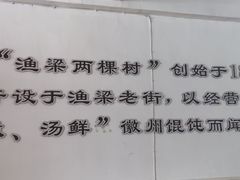 “渔梁两棵村”创始于1
设于渔梁老街，以经营
、汤鲜”徽州馄饨而闻